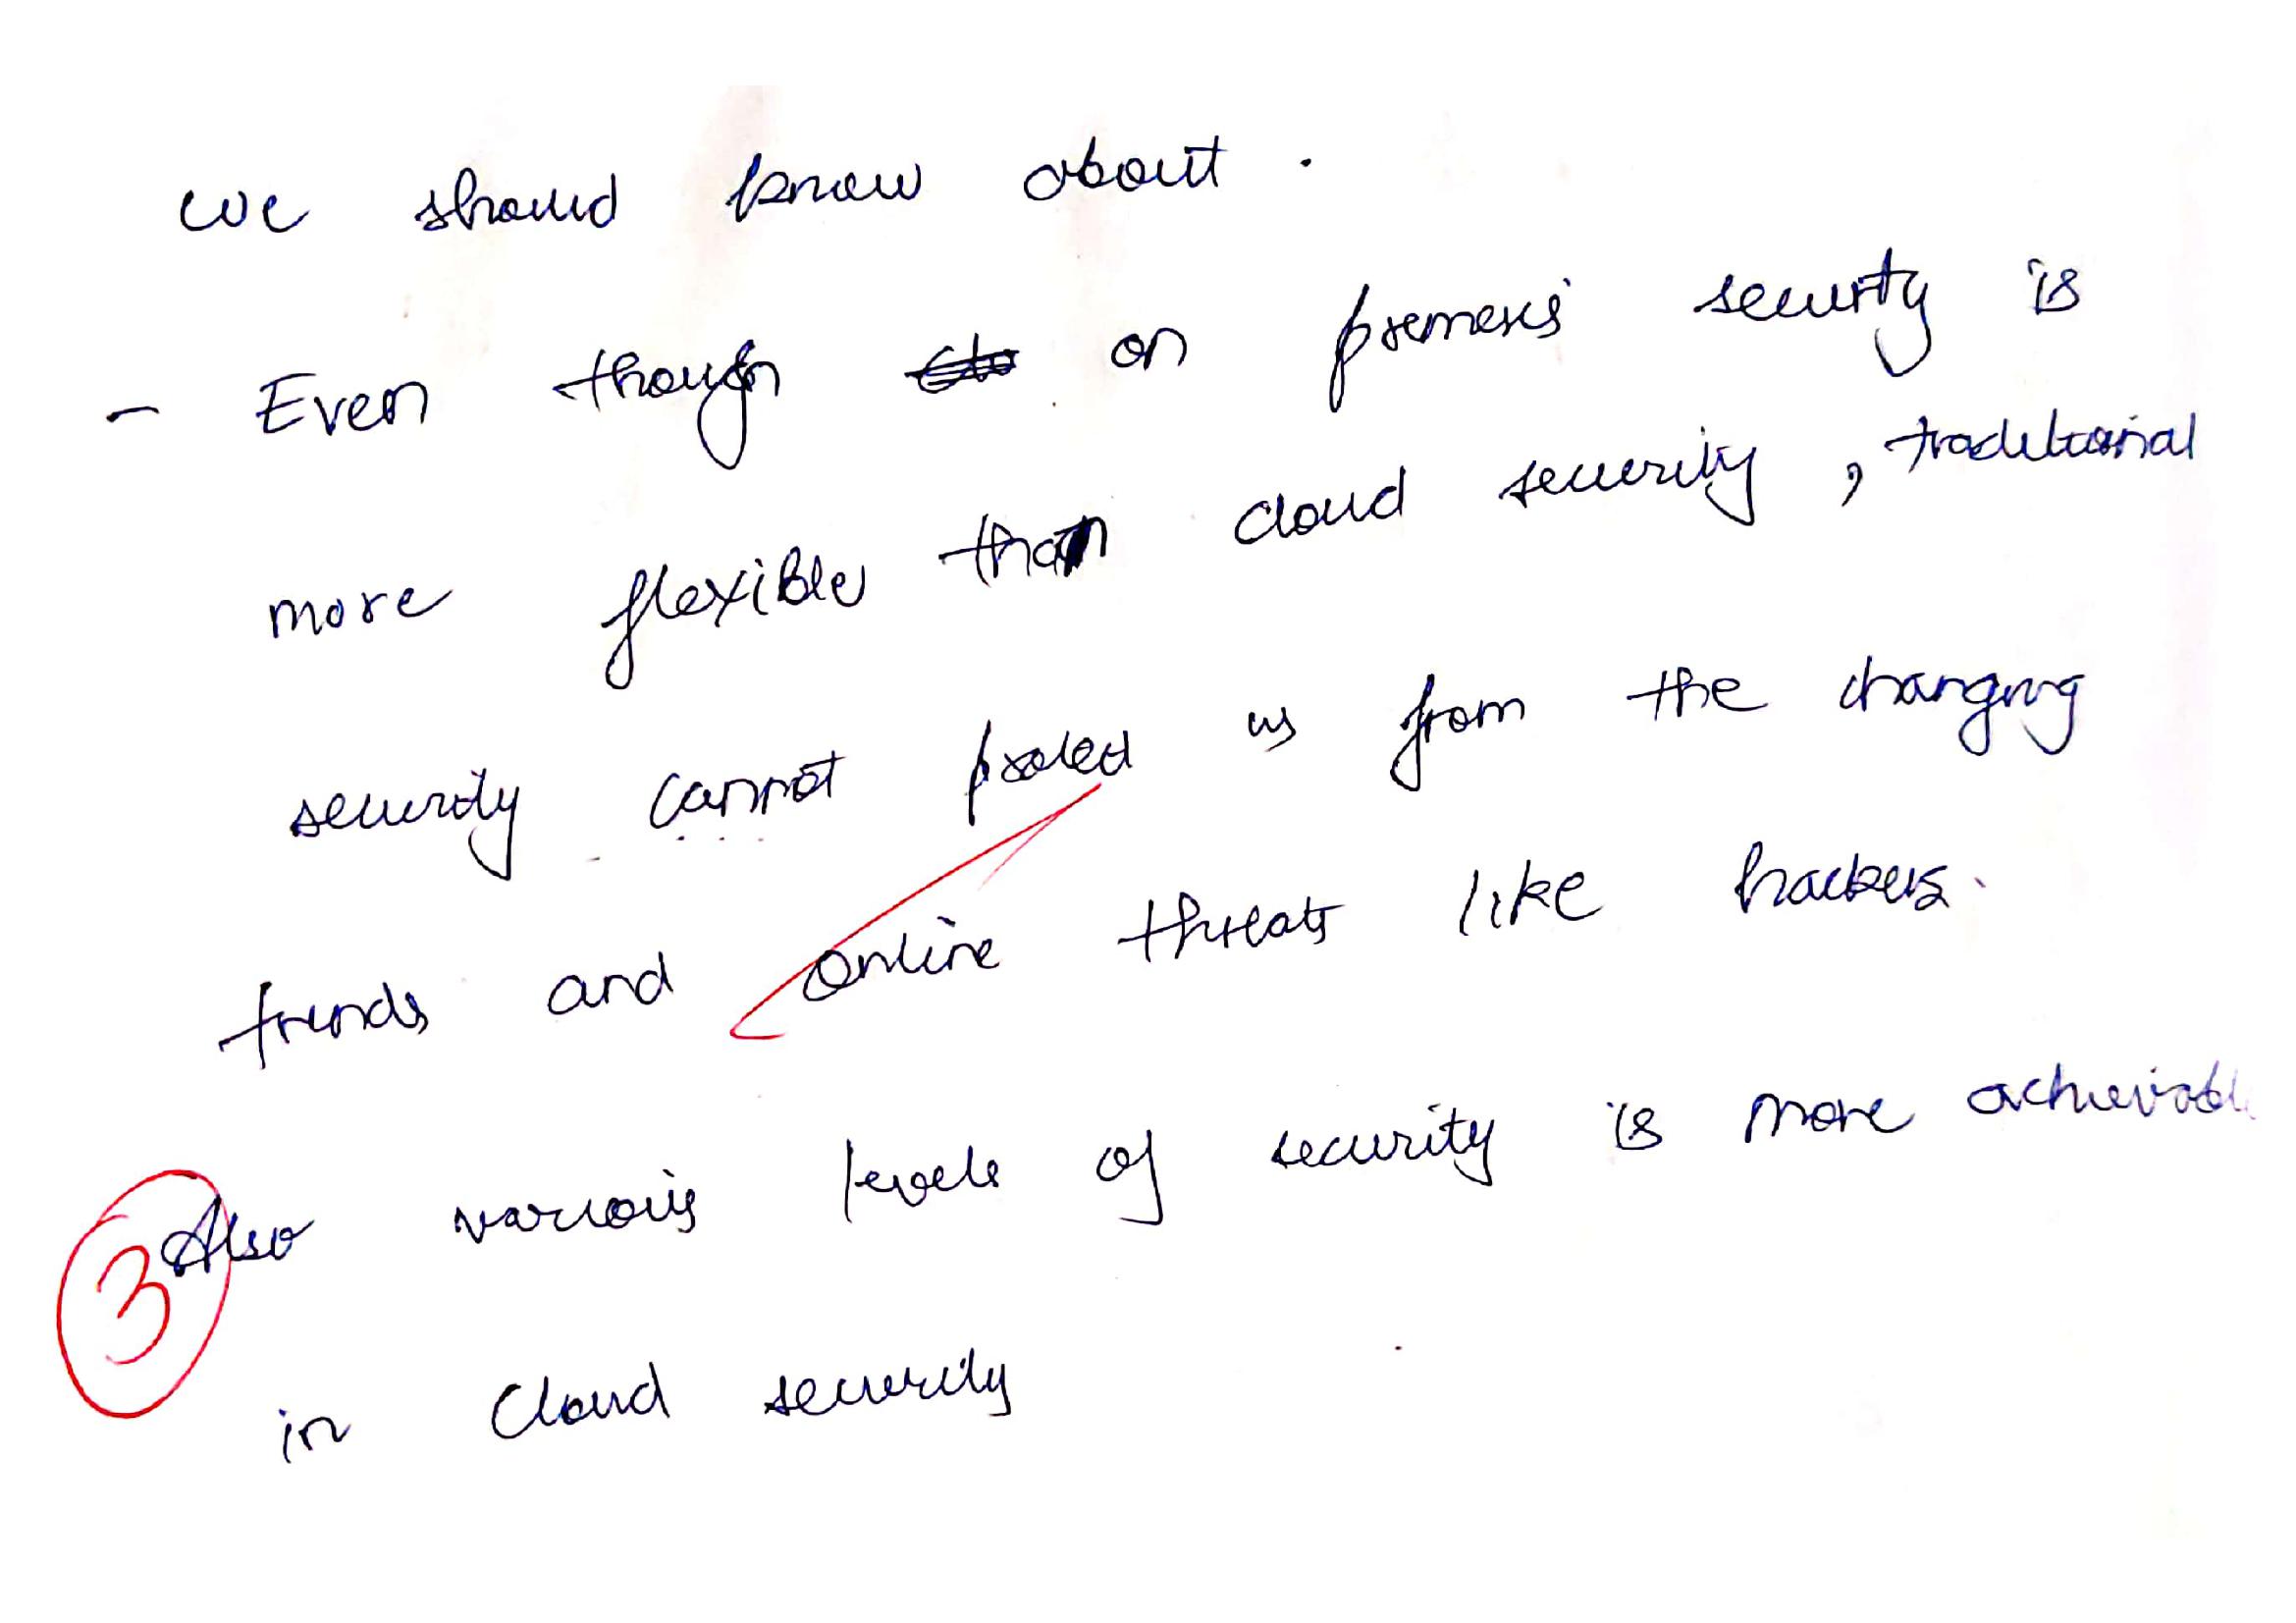 we should know about .
- Even though on premesis security is
more flexible than cloud security , traditional
security cannot protect us from the changing
trends and online threats like hackers.
Also various levels of security is more achievable
3
in cloud security